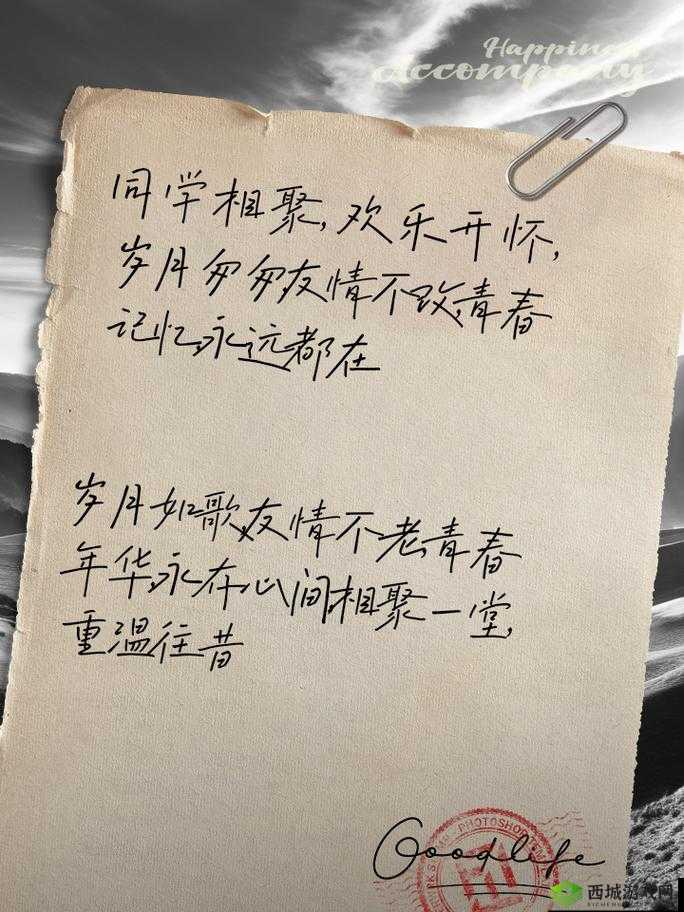 Happiness
Accompany
同学相聚,欢乐开怀,
岁月匆匆友情不改,青春
记忆,永远都在
岁月如歌,友情不老,青春
年华,永在心间,相聚一堂,
重温往昔
PHOTOSHOP
Goodlife
西城游戏网